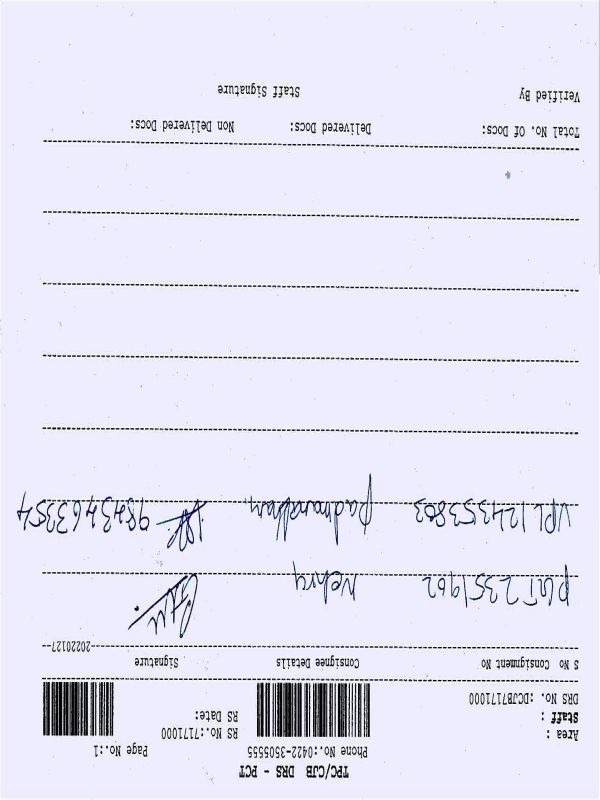 TPC/CJB DRS - PCT
Phone No.:0422-3505555 Page No.:1
Area :
Staff : RS No.:7171000
DRS No. :DCJB7171000 RS Date:
S No Consignment No Consignee Details Signature
20220127
PLAT 2351962 Nehru
VPL 124353803 Padmanabhan 9843463354
Total No. Of Docs: Delivered Docs: Non Delivered Docs:
Verified By Staff Signature